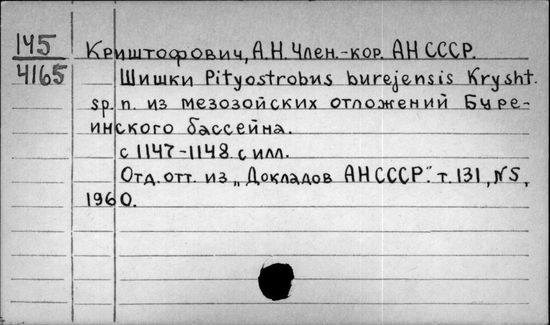 145
4165
Криштофович, А.Н. Член.-кор. АН СССР.
Шишки Pityostrobus burejensis Krysht.
sp. n. из мезозойских отложений Буре-
инского бассейна.
с 1147-1148. с илл.
Отд. отт. из „Докладов АН СССР". т. 131, №5,
1960.